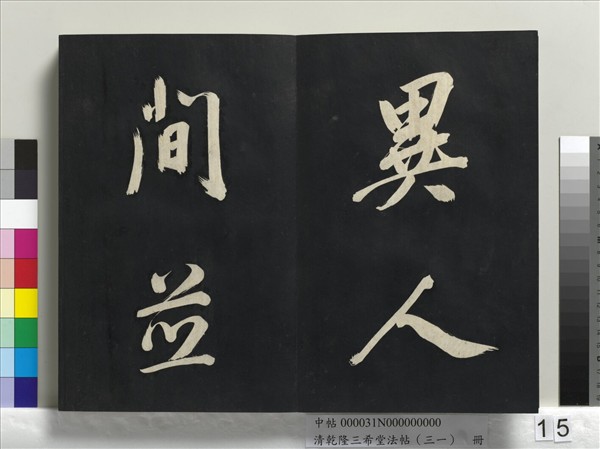 異人
間並
中帖 000031N000000000
清乾隆三希堂法帖（三一） 冊
15